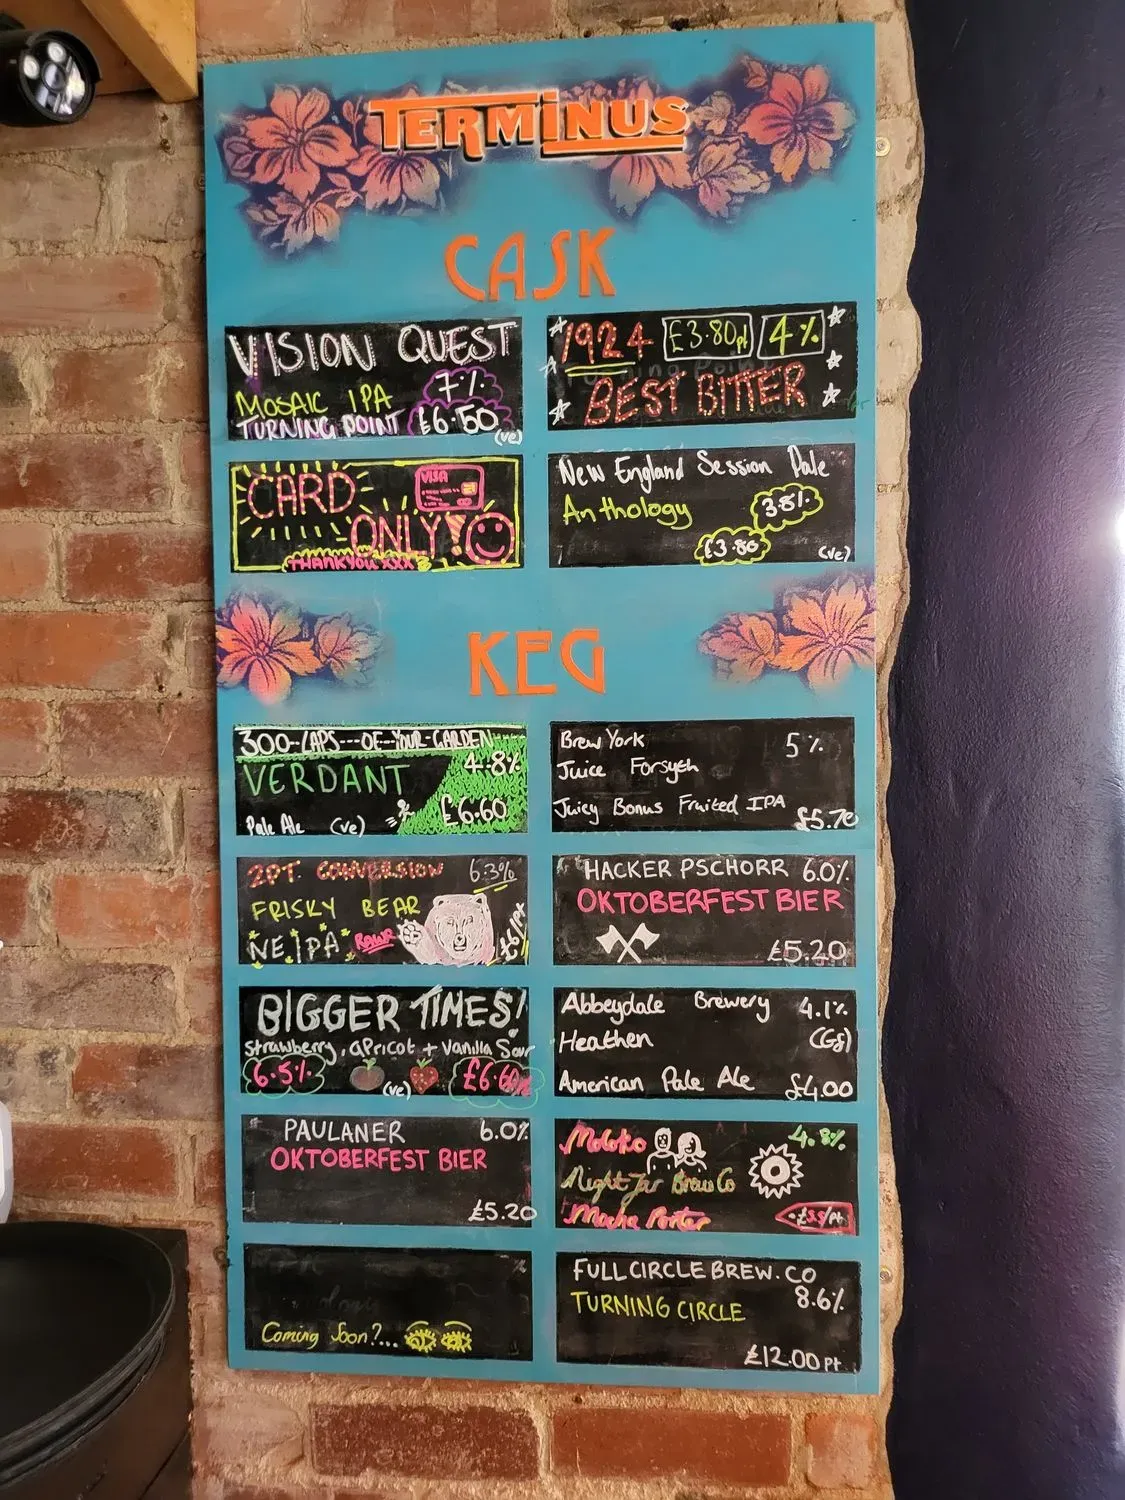 TERMINUS
CASK
VISION QUEST
MOSAIC IPA
7%
TURNING POINT
£6.50
(ve)
1924
£3.80pt
4%
BEST BITTER
CARD
VISA
ONLY!
THANKYOU XXX
New England Session Pale
Anthology
3.8%
£3.80
(ve)
KEG
300-LAPS---OF-YOUR-GARDEN
VERDANT
4.8%
£6.60
Pale Ale (ve)
Brew York
5%
Juice Forsyth
Juicy Bonus Fruited IPA
£5.70
2PT. CONVERSION
6.3%
FRISKY BEAR
NEIPA
RAWR
£6/Pt
HACKER PSCHORR 6.0%
OKTOBERFEST BIER
£5.20
BIGGER TIMES!
Strawberry, apricot + Vanilla Sour
6.5%
(ve)
Abbeydale Brewery 4.1%
Heathen (Gf)
American Pale Ale £4.00
PAULANER 6.0%
OKTOBERFEST BIER
£5.20
Moloko
4.8%
Night Jar Brew Co
Mocha Porter
Coming Soon?...
FULL CIRCLE BREW. CO
8.6%
TURNING CIRCLE
£12.00 Pt